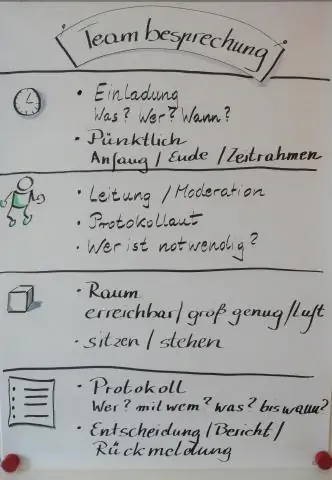 Teambesprechung
• Einladung
Was? Wer? Wann?
• Pünktlich
Anfang / Ende / Zeitrahmen
• Leitung / Moderation
• Protokollant
• Wer ist notwendig?
• Raum
erreichbar / groß genug / Luft
• sitzen / stehen
• Protokoll
Wer? mit wem? was? bis wann?
• Entscheidung / Bericht /
Rückmeldung